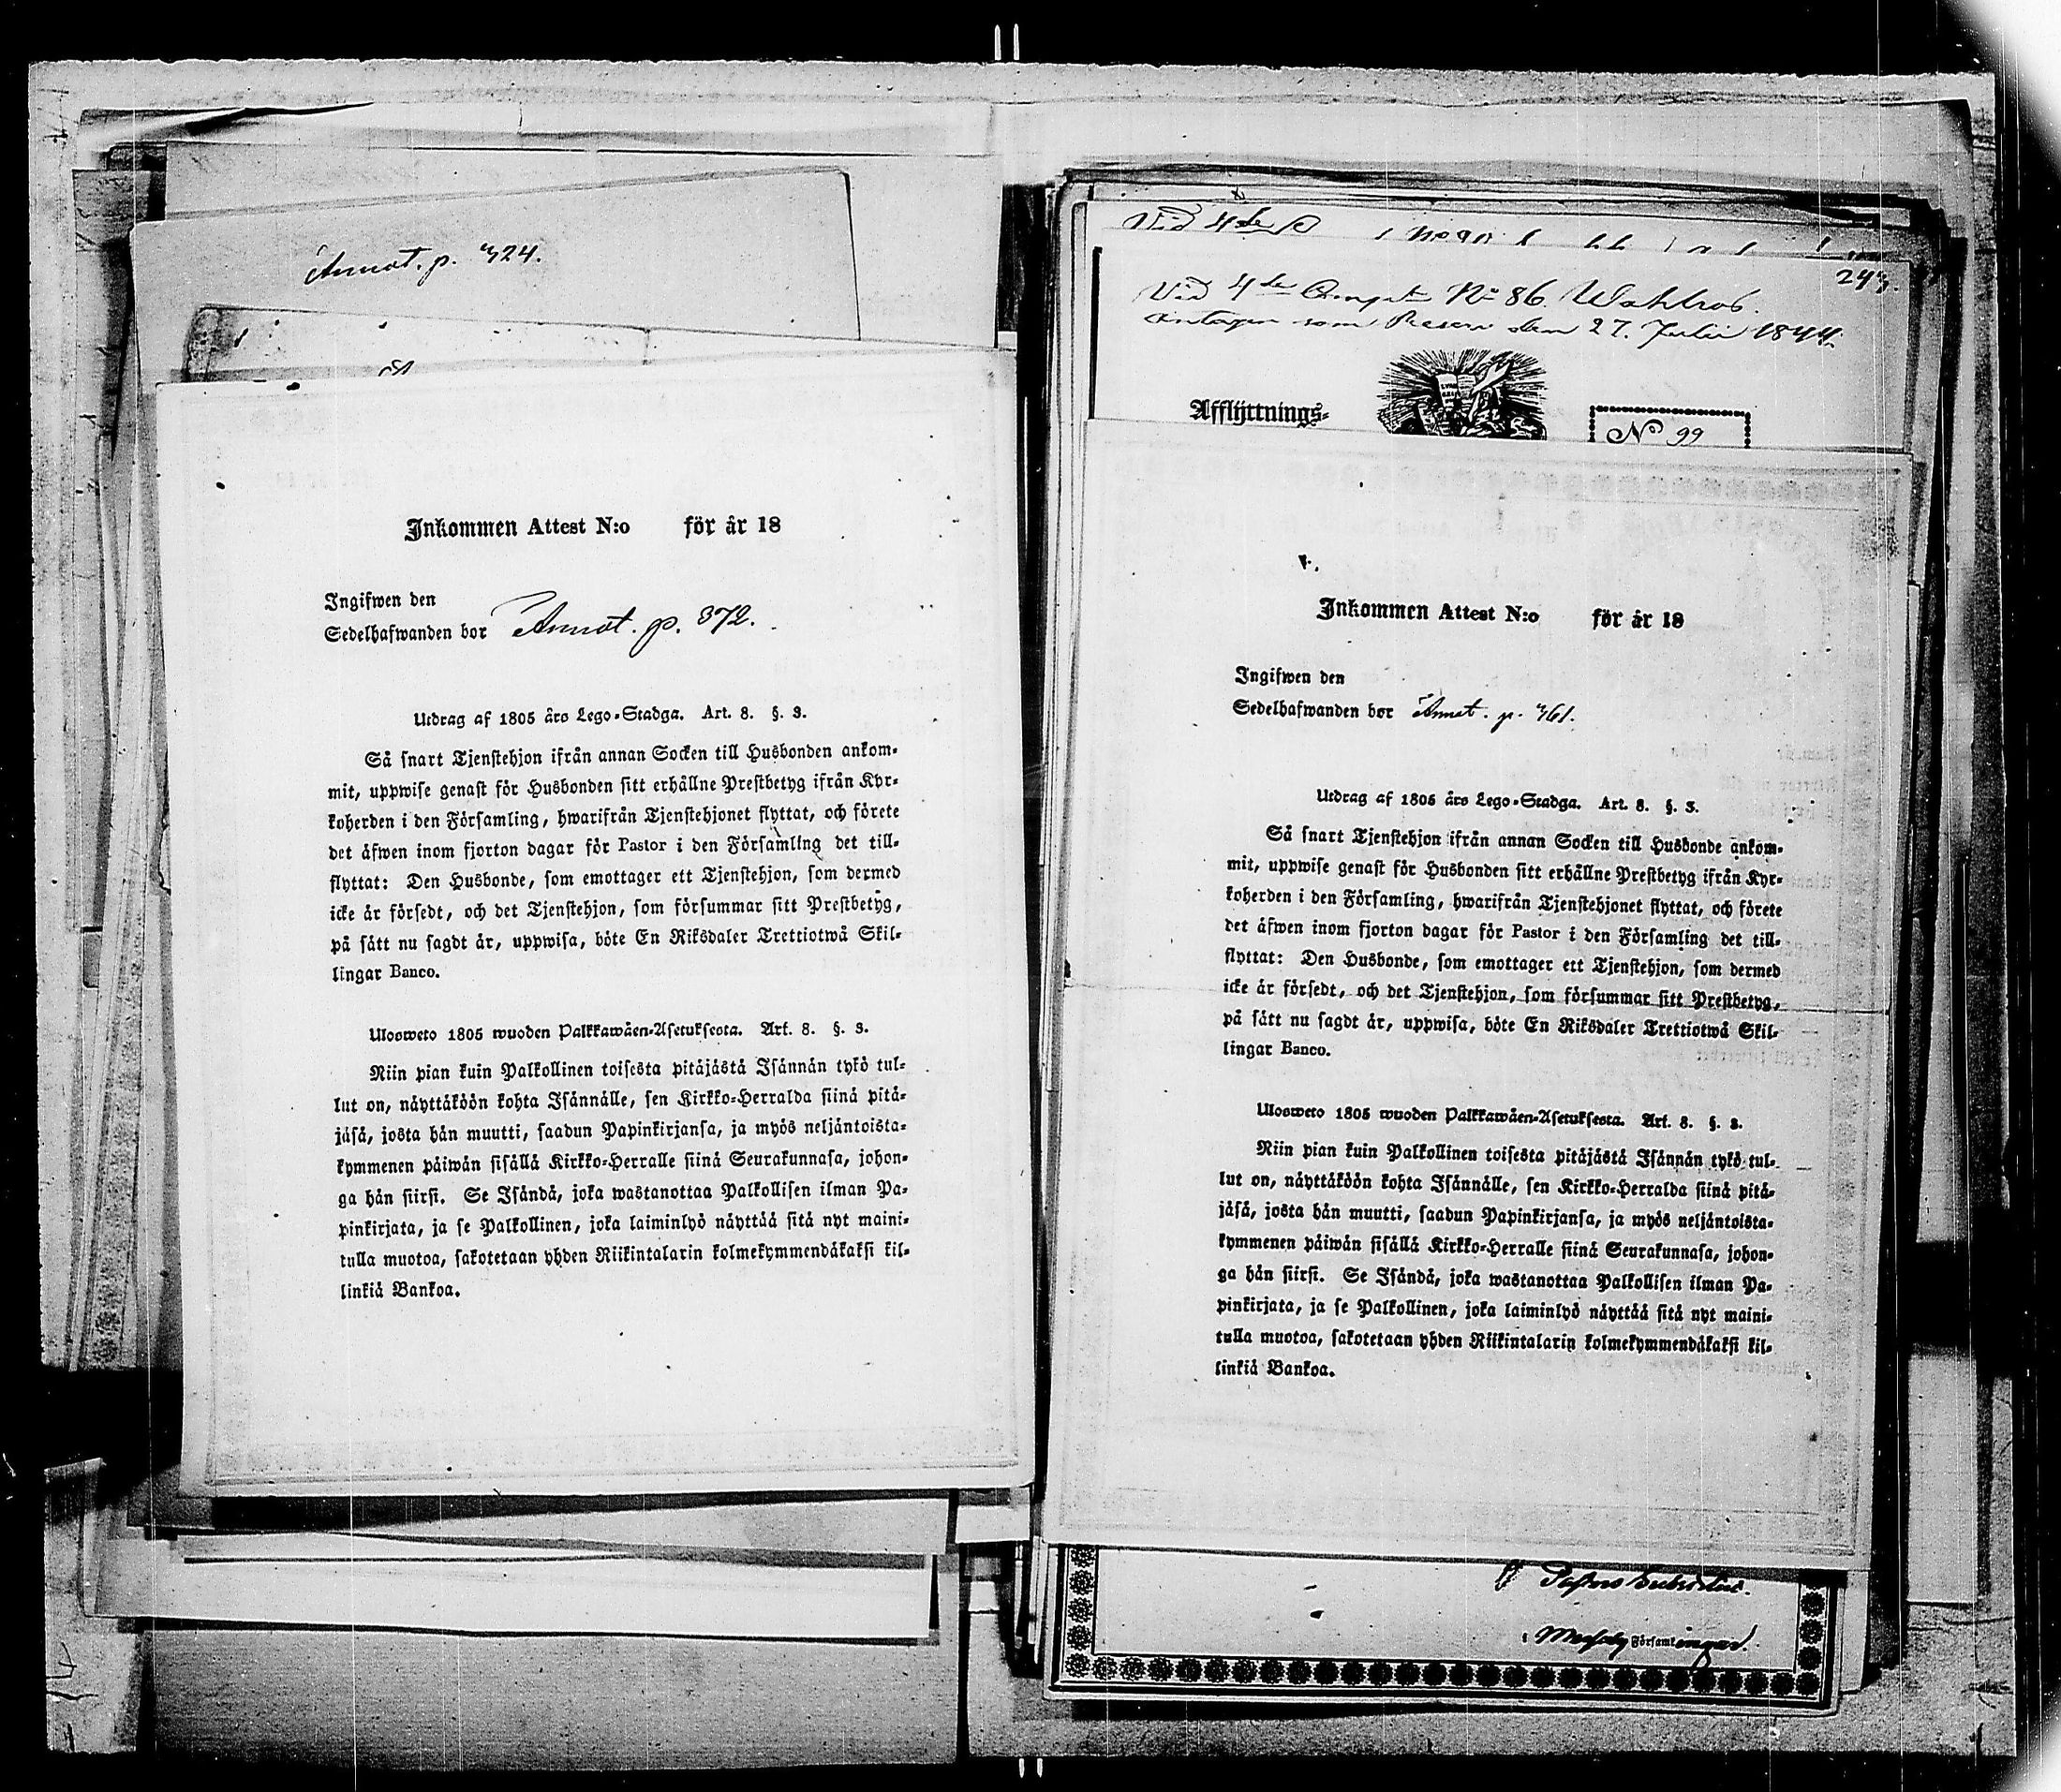 Annot. p. 324.
Inkommen Attest N:o för år 18
Ingifwen den
Sedelhafwanden bor Annot. p. 372.
Utdrag af 1805 års Lego-Stadga. Art. 8. §. 3.
Så snart Tjenstehjon ifrån annan Socken till Husbonden ankom-
mit, uppwise genast för Husbonden sitt erhållne Prestbetyg ifrån Kyr-
koherden i den Församling, hwarifrån Tjenstehjonet flyttat, och förete
det äfwen inom fjorton dagar för Pastor i den Församling det till-
flyttat: Den Husbonde, som emottager ett Tjenstehjon, som dermed
icke är försedt, och det Tjenstehjon, som försummar sitt Prestbetyg,
på sätt nu sagdt är, uppwisa, böte En Riksdaler Trettiotwå Skil-
lingar Banco.
Ulosweto 1805 wuoden Palkkawäen-Asetuksesta. Art. 8. §. 3.
Niin pian kuin Palkollinen toisesta pitäjästä Isännän tykö tul-
lut on, näyttäköön kohta Isännälle, sen Kirkko-Herralda siinä pitä-
jäsä, josta hän muutti, saadun Papinkirjansa, ja myös neljäntoista-
kymmenen päiwän sisällä Kirkko-Herralle siinä Seurakunnasa, johon-
ga hän siirsi. Se Isändä, joka wastanottaa Palkollisen ilman Pa-
pinkirjata, ja se Palkollinen, joka laiminlyö näyttää sitä nyt maini-
tulla muotoa, sakotetaan yhden Riikintalarin kolmekymmendäkaksi kil-
linkiä Bankoa.
Vid 4de
247.
Vid 4de Comp. N:o 86. Wahlros.
antagen som Reserv den 27. Julii 1844.
Afflyttnings-
No 99
Inkommen Attest N:o för år 18
Ingifwen den
Sedelhafwanden bor Annot. p. 361.
Utdrag af 1805 års Lego-Stadga. Art. 8. §. 3.
Så snart Tjenstehjon ifrån annan Socken till Husbonde ankom-
mit, uppwise genast för Husbonden sitt erhållne Prestbetyg ifrån Kyr-
koherden i den Församling, hwarifrån Tjenstehjonet flyttat, och förete
det äfwen inom fjorton dagar för Pastor i den Församling det till-
flyttat: Den Husbonde, som emottager ett Tjenstehjon, som dermed
icke är försedt, och det Tjenstehjon, som försummar sitt Prestbetyg,
på sätt nu sagdt är, uppwisa, böte En Riksdaler Trettiotwå Skil-
lingar Banco.
Ulosweto 1805 wuoden Palkkawäen-Asetuksesta. Art. 8. §. 3.
Niin pian kuin Palkollinen toisesta pitäjästä Isännän tykö tul-
lut on, näyttäköön kohta Isännälle, sen Kirkko-Herralda siinä pitä-
jäsä, josta hän muutti, saadun Papinkirjansa, ja myös neljäntoista-
kymmenen päiwän sisällä Kirkko-Herralle siinä Seurakunnasa, johon-
ga hän siirsi. Se Isändä, joka wastanottaa Palkollisen ilman Pa-
pinkirjata, ja se Palkollinen, joka laiminlyö näyttää sitä nyt maini-
tulla muotoa, sakotetaan yhden Riikintalarin kolmekymmendäkaksi kil-
linkiä Bankoa.
Pastors
i Församlingar.